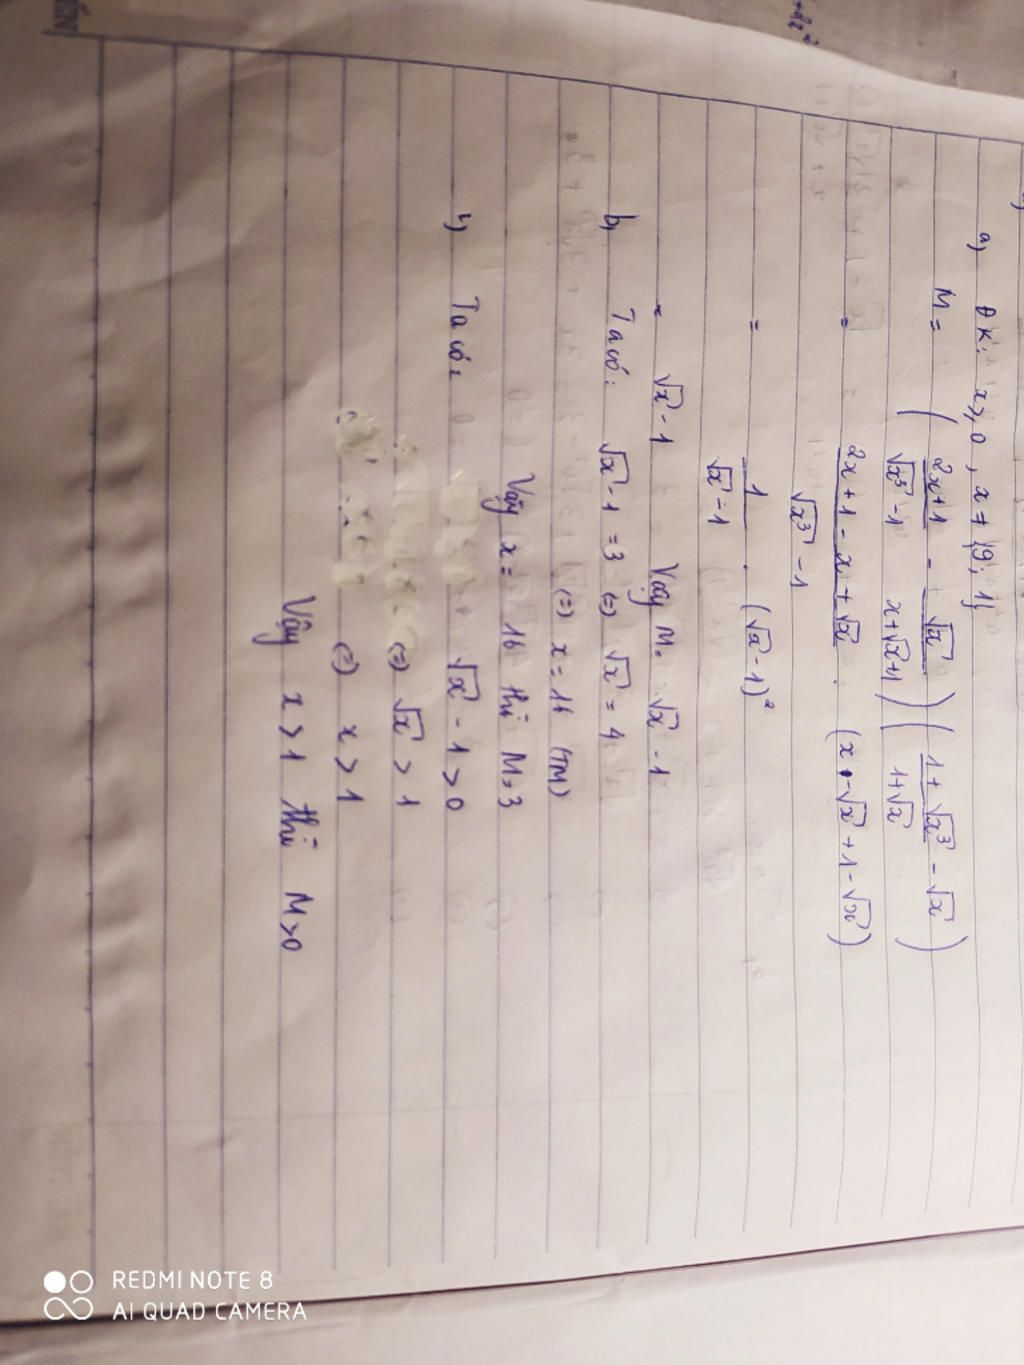 a) ĐK: x ≥ 0, x ≠ {9; 1}
M = ( (2x+1)/(√x³ - 1) - √x/(x+√x+1) ) ( (1+√x³)/(1+√x) - √x )
= (2x+1 - x + √x)/(√x³ - 1) . (x - √x + 1 - √x)
= 1/(√x - 1) . (√x - 1)²
= √x - 1 Vậy M = √x - 1
b) Ta có: √x - 1 = 3 (=) √x = 4
(=) x = 16 (TM)
Vậy x = 16 thì M = 3
Ta có: √x - 1 > 0
(=) √x > 1
(=) x > 1
Vậy x > 1 thì M > 0
REDMI NOTE 8
AI QUAD CAMERA